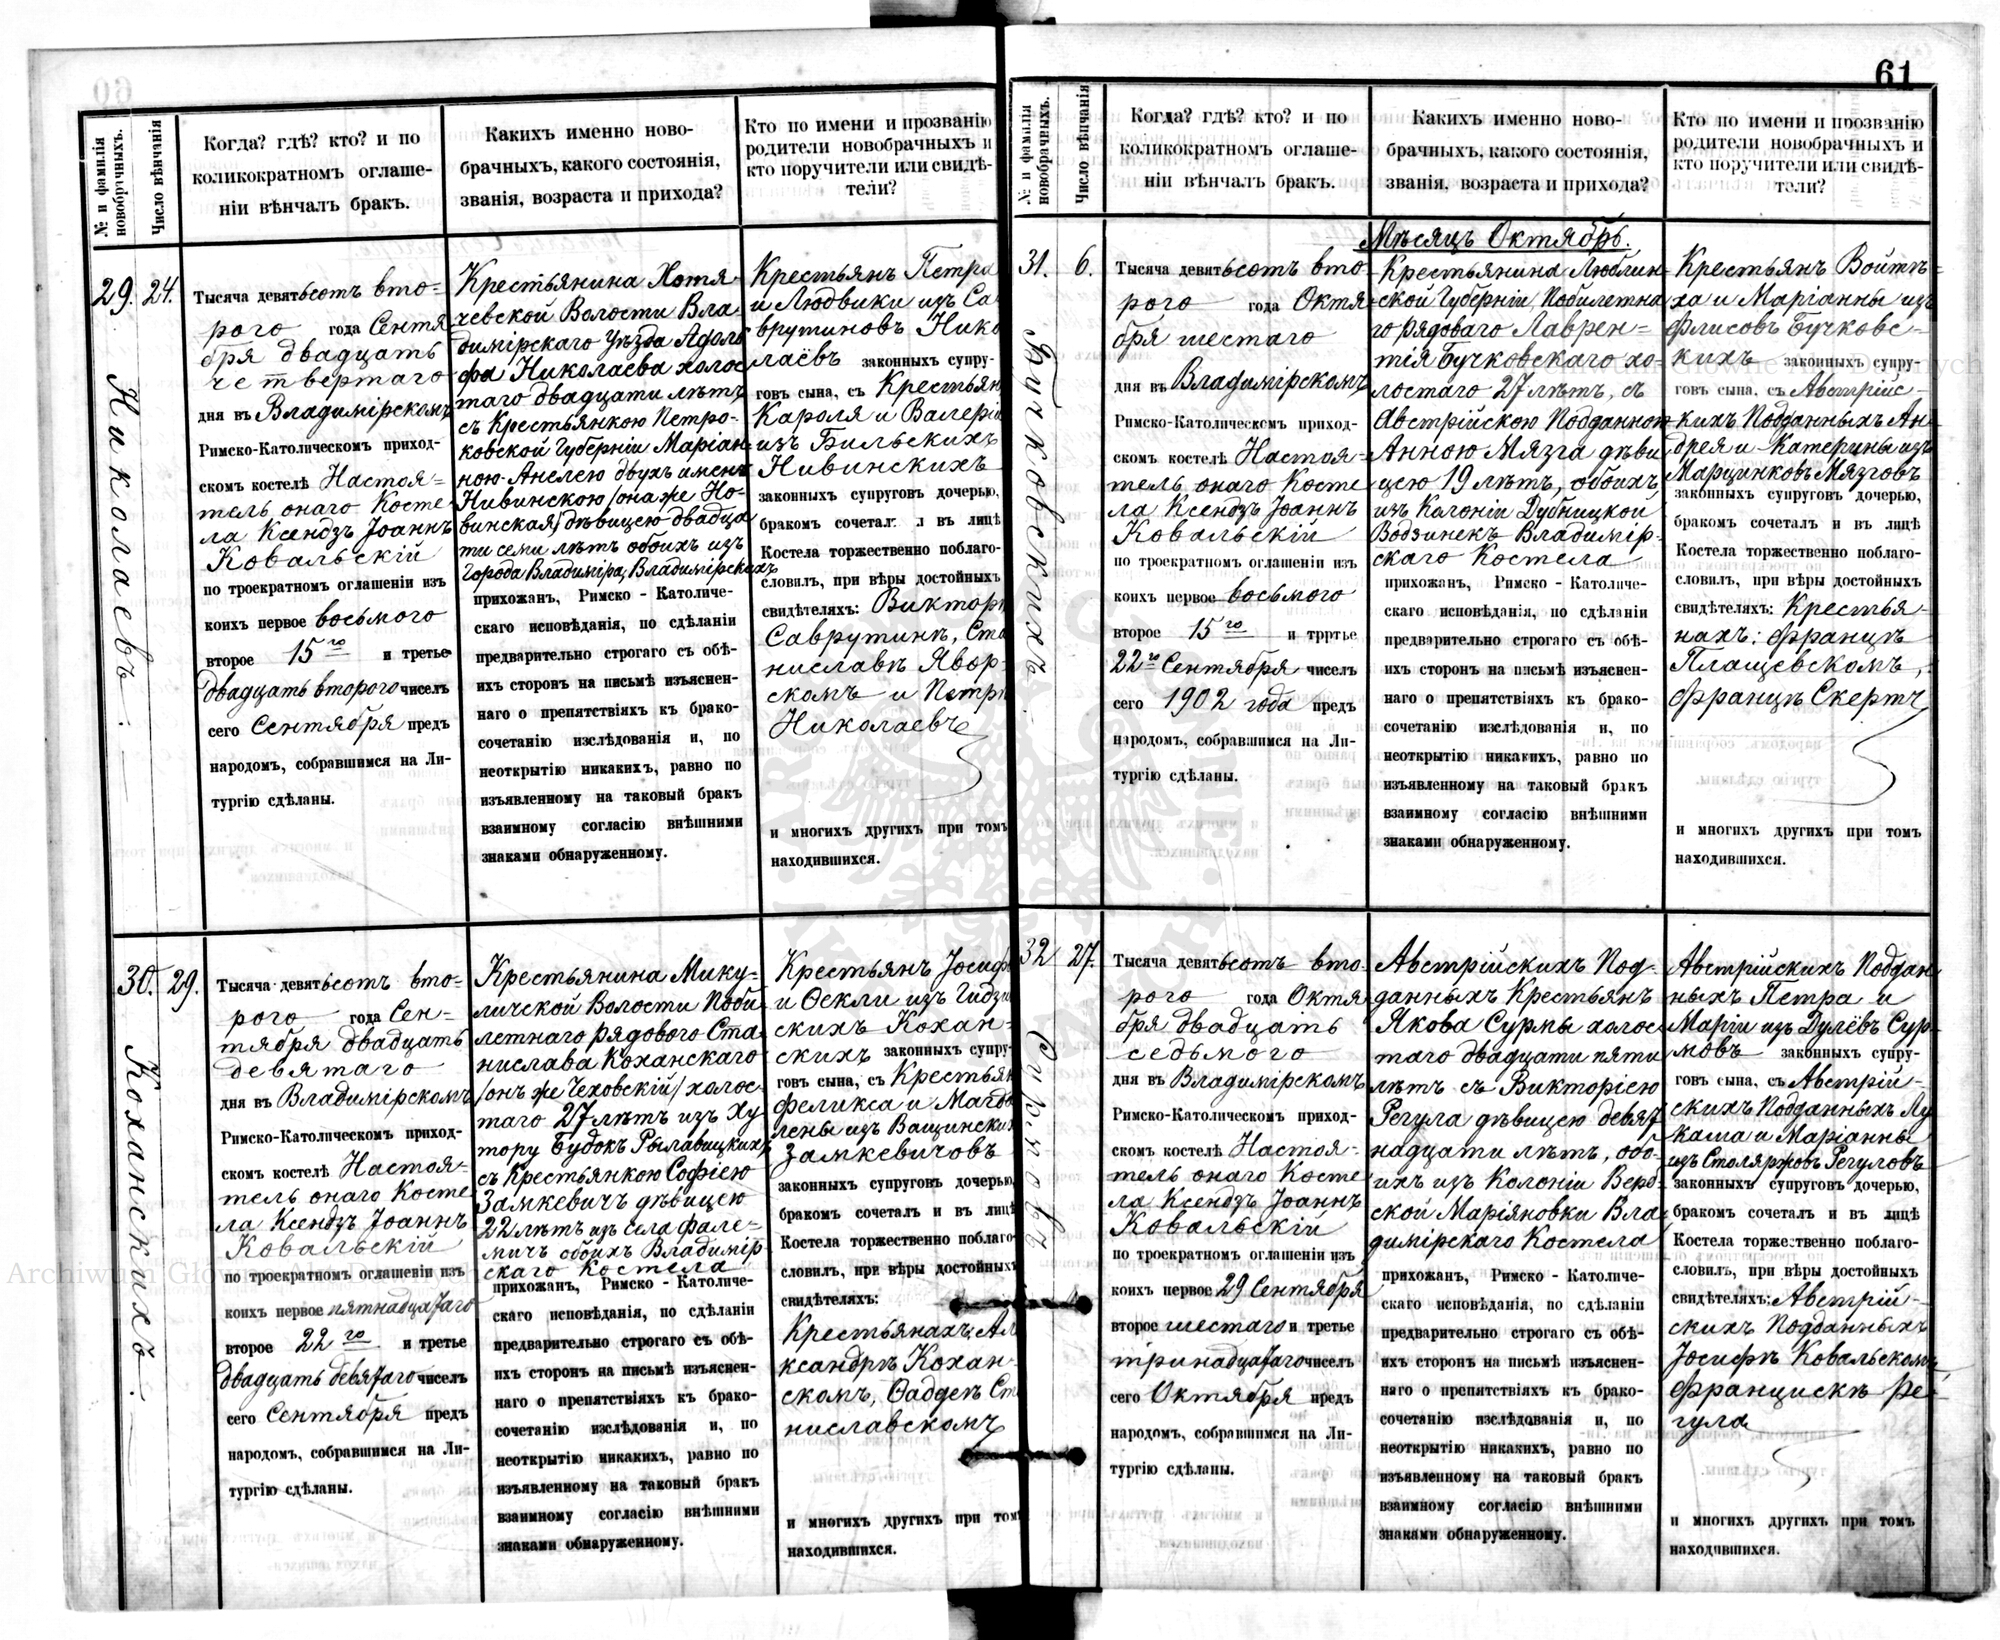 61
№ и фамилія новобрачныхъ.
Число вѣнчанія
Когда? гдѣ? кто? и по
коликократномъ оглаше-
ніи вѣнчалъ бракъ.
Какихъ именно ново-
брачныхъ, какого состоянія,
званія, возраста и прихода?
Кто по имени и прозванію
родители новобрачныхъ и
кто поручители или свидѣ-
тели?
29.
24.
Николаевъ.
Тысяча девятьсотъ вто-
рого года Сентя
бря двадцать
четвертаго
дня въ Владимірскомъ
Римско-Католическомъ приход-
скомъ костелѣ Настоя-
тель онаго Косте
ла Ксендзъ Іоаннъ
Ковальскій
по троекратномъ оглашеніи изъ
коихъ первое восьмого
второе 15го и третье
двадцать второго чиселъ
сего Сентября предъ
народомъ, собравшимся на Ли-
тургію сдѣланы.
Крестьянина Хотя-
чевской Волости Вла-
димірскаго Уѣзда Адоль
фа Николаева холос
таго двадцати лѣтъ
съ Крестьянкою Петро-
ковской Губерніи Маріан
ною-Анелею двухъ именъ
Нивинскою /она же Но-
винская/ дѣвицею двадца
ти семи лѣтъ обоихъ изъ
Города Владиміра, Владимірскихъ
прихожанъ, Римско - Католиче-
скаго исповѣданія, по сдѣланіи
предварительно строгаго съ обѣ-
ихъ сторонъ на письмѣ изъяснен-
наго о препятствіяхъ къ брако-
сочетанію изслѣдованія и, по
неоткрытію никакихъ, равно по
изъявленному на таковый бракъ
взаимному согласію внѣшними
знаками обнаруженному.
Крестьянъ Петра
и Людвики изъ Са
врутиновъ Нико
лаёвъ законныхъ супру-
говъ сына, съ Крестьян
Кароля и Валеріи
изъ Бильскихъ
Нивинскихъ
законныхъ супруговъ дочерью,
бракомъ сочеталъ и въ лицѣ
Костела торжественно поблаго-
словилъ, при вѣры достойныхъ
свидѣтеляхъ: Викторѣ
Саврутинѣ, Ста
ниславѣ Явор-
скомъ и Петрѣ
Николаевѣ
и многихъ другихъ при томъ
находившихся.
30.
29.
Коханскихъ.
Тысяча девятьсотъ вто-
рого года Сен-
тября двадцать
девятаго
дня въ Владимірскомъ
Римско-Католическомъ приход-
скомъ костелѣ Настоя-
тель онаго Косте
ла Ксендзъ Іоаннъ
Ковальскій
по троекратномъ оглашеніи изъ
коихъ первое пятнадцатаго
второе 22го и третье
двадцать девятаго чиселъ
сего Сентября предъ
народомъ, собравшимся на Ли-
тургію сдѣланы.
Крестьянина Мику-
личской Волости Поби
летнаго рядового Ста
нислава Коханскаго
/онъ же Чеховскій/ холос-
таго 27 лѣтъ изъ Ху
тору Будокъ Рылавицкихъ,
съ Крестьянкою Софіею
Замкевичъ дѣвицею
22 лѣтъ изъ села Фале-
мичъ обоихъ Владимір
скаго Костела
прихожанъ, Римско - Католиче-
скаго исповѣданія, по сдѣланіи
предварительно строгаго съ обѣ-
ихъ сторонъ на письмѣ изъяснен-
наго о препятствіяхъ къ брако-
сочетанію изслѣдованія и, по
неоткрытію никакихъ, равно по
изъявленному на таковый бракъ
взаимному согласію внѣшними
знаками обнаруженному.
Крестьянъ Іосифа
и Оскли изъ Гидзин
скихъ Кохан-
скихъ законныхъ супру-
говъ сына, съ Крестьян
Феликса и Магда
лены изъ Ващински
Замкевичовъ
законныхъ супруговъ дочерью,
бракомъ сочеталъ и въ лицѣ
Костела торжественно поблаго-
словилъ, при вѣры достойныхъ
свидѣтеляхъ:
Крестьянахъ: Але
ксандрѣ Кохан-
скомъ, Фаддеѣ Ста
ниславскомъ
и многихъ другихъ при томъ
находившихся.
№ и фамилія новобрачныхъ.
Число вѣнчанія
Когда? гдѣ? кто? и по
коликократномъ оглаше-
ніи вѣнчалъ бракъ.
Какихъ именно ново-
брачныхъ, какого состоянія,
званія, возраста и прихода?
Кто по имени и прозванію
родители новобрачныхъ и
кто поручители или свидѣ-
тели?
Мѣсяцъ Октябрь.
31.
6.
Бучковскихъ
Тысяча девятьсотъ вто-
рого года Октя
бря шестаго
дня въ Владимірскомъ
Римско-Католическомъ приход-
скомъ костелѣ Настоя-
тель онаго Косте
ла Ксендзъ Іоаннъ
Ковальскій
по троекратномъ оглашеніи изъ
коихъ первое восьмого
второе 15го и третье
22го Сентября чиселъ
сего 1902 года предъ
народомъ, собравшимся на Ли-
тургію сдѣланы.
Крестьянина Люблин-
ской Губерніи, Побилетна
го рядоваго Лаврен-
тія Бучковскаго хо-
лостаго 27 лѣтъ, съ
Австрійскою Подданной
Анною Мязга дѣви
цею 19 лѣтъ, обоихъ
изъ Колоніи Дубницкой
Водзинекъ Владимір-
скаго Костела
прихожанъ, Римско - Католиче-
скаго исповѣданія, по сдѣланіи
предварительно строгаго съ обѣ-
ихъ сторонъ на письмѣ изъяснен-
наго о препятствіяхъ къ брако-
сочетанію изслѣдованія и, по
неоткрытію никакихъ, равно по
изъявленному на таковый бракъ
взаимному согласію внѣшними
знаками обнаруженному.
Крестьянъ Войтѣ-
ха и Маріанны изъ
Флисовъ Бучковс-
кихъ законныхъ супру-
говъ сына, съ Австрійс-
кихъ Подданныхъ Ан-
дрея и Катерины изъ
Марцинковъ Мязговъ
законныхъ супруговъ дочерью,
бракомъ сочеталъ и въ лицѣ
Костела торжественно поблаго-
словилъ, при вѣры достойныхъ
свидѣтеляхъ: Крестья-
нахъ: Францѣ
Плащевскомъ,
Францѣ Скертъ
и многихъ другихъ при томъ
находившихся.
32
27.
Сурмовъ
Тысяча девятьсотъ вто-
рого года Октя
бря двадцать
седьмого
дня въ Владимірскомъ
Римско-Католическомъ приход-
скомъ костелѣ Настоя-
тель онаго Косте
ла Ксендзъ Іоаннъ
Ковальскій
по троекратномъ оглашеніи изъ
коихъ первое 29 Сентября
второе шестаго и третье
тринадцатаго чиселъ
сего Октября предъ
народомъ, собравшимся на Ли-
тургію сдѣланы.
Австрійскихъ Под-
данныхъ Крестьянъ
Якова Сурмы холос
таго двадцати пяти
лѣтъ съ Викторіею
Регула дѣвицею девят
надцати лѣтъ, обо-
ихъ изъ Колоніи Веро-
ской Маріяновки Вла
димірскаго Костела
прихожанъ, Римско - Католиче-
скаго исповѣданія, по сдѣланіи
предварительно строгаго съ обѣ-
ихъ сторонъ на письмѣ изъяснен-
наго о препятствіяхъ къ брако-
сочетанію изслѣдованія и, по
неоткрытію никакихъ, равно по
изъявленному на таковый бракъ
взаимному согласію внѣшними
знаками обнаруженному.
Австрійскихъ Поддан
ныхъ Петра и
Маріи изъ Дулёвъ Сур-
мовъ законныхъ супру-
говъ сына, съ Австрій-
скихъ Подданныхъ Лу
каша и Маріанны
изъ Столяржовъ Регуловъ
законныхъ супруговъ дочерью,
бракомъ сочеталъ и въ лицѣ
Костела торжественно поблаго-
словилъ, при вѣры достойныхъ
свидѣтеляхъ: Австрій-
скихъ Подданныхъ
Іосифѣ Ковальскомъ
Францискѣ Ре-
гула
и многихъ другихъ при томъ
находившихся.